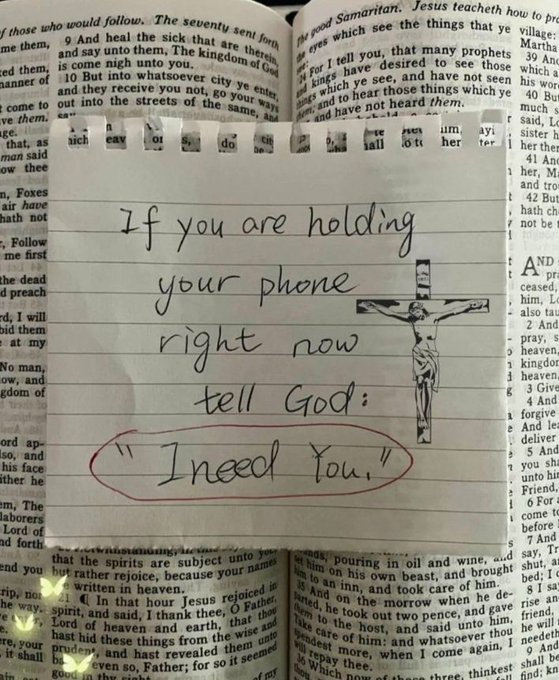 of those who would follow. The seventy sent forth
me them,
ked them,
manner of
come to
ve them.
that, as
man said
ow thee
n, Foxes
air have
hath not
, Follow
me first
the dead
d preach
rd, I will
bid them
at my
No man,
ow, and
gdom of
ord ap-
lso, and
his face
ither he
em, The
laborers
Lord of
nd forth
9 And heal the sick that are therein,
and say unto them, The kingdom of God
is come nigh unto you.
10 But into whatsoever city ye enter,
and they receive you not, go your ways
out into the streets of the same, and
If you are holding
your phone
right now
tell God:
"I need You."
that the spirits are subject unto you;
but rather rejoice, because your names
written in heaven.
21 ¶ In that hour Jesus rejoiced in
spirit, and said, I thank thee, O Father,
Lord of heaven and earth, that thou
hast hid these things from the wise and
prudent, and hast revealed them unto
even so, Father; for so it seemed
good in thy sight.
good Samaritan. Jesus teacheth how to pr
eyes which see the things that ye
24 For I tell you, that many prophets
kings have desired to see those
things which ye see, and have not seen
and to hear those things which ye
and have not heard them.
pouring in oil and wine, and
set him on his own beast, and brought
him to an inn, and took care of him.
35 And on the morrow when he de-
parted, he took out two pence, and gave
them to the host, and said unto him,
Take care of him; and whatsoever thou
spendest more, when I come again, I
will repay thee.
36 Which now of these three, thinkest
village:
Martha
39 And
which a
his wor
40 But
much s
said, Lo
sister h
her ther
41 And
her, Ma
and tro
42 But
hath ch
not be t
AND
ceased,
him, Lo
also tau
2 And
pray, s
heaven,
kingdor
heaven,
3 Give
4 And
forgive
And lea
deliver
5 And
you sha
unto hin
Friend,
6 For a
come to
before
7 And
say, Tr
shut, a
bed; I c
8 I say
rise an
friend,
he will
needet
9 And
shall be
find; kn